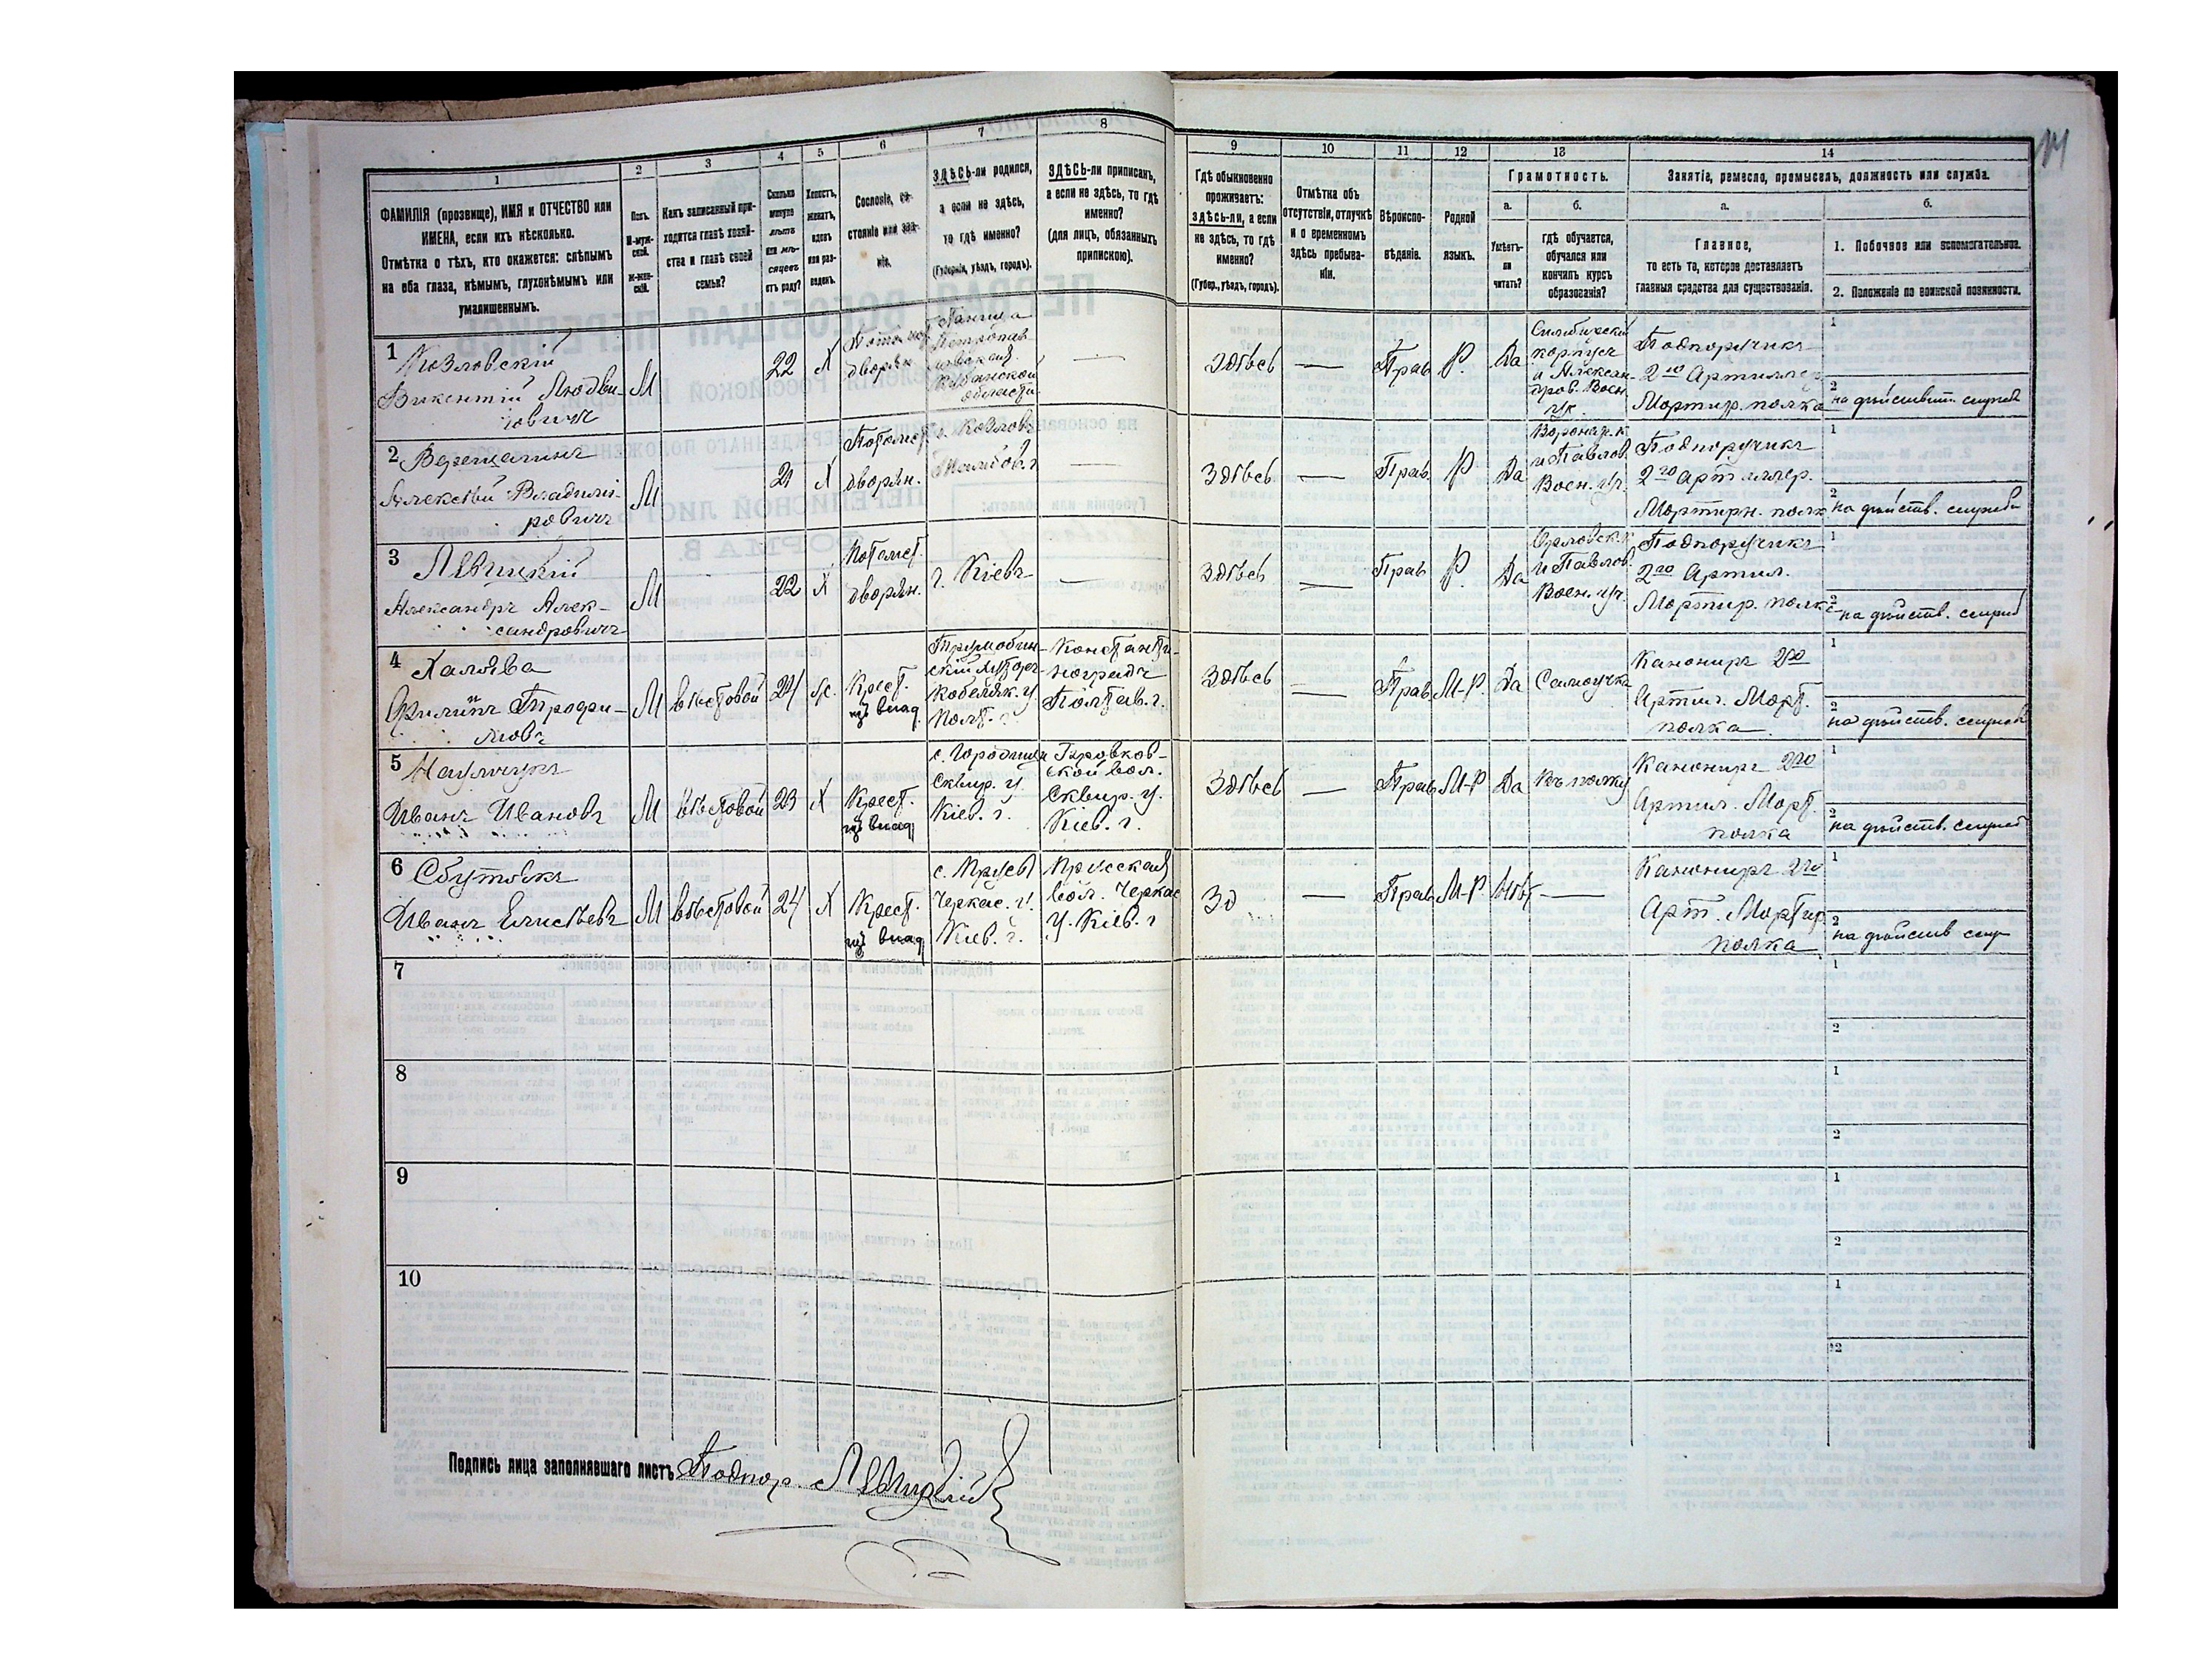 14
1
ФАМИЛІЯ (прозвище), ИМЯ и ОТЧЕСТВО или
ИМЕНА, если ихъ нѣсколько.
Отмѣтка о тѣхъ, кто окажется: слѣпымъ
на оба глаза, нѣмымъ, глухонѣмымъ или
умалишеннымъ.
2
Полъ.
М-муж-
ской.
ж-жен-
скій.
3
Какъ записанный при-
ходится главѣ хозяй-
ства и главѣ своей
семьи?
4
Сколько
минуло
лѣтъ
или мѣ-
сяцевъ
отъ роду?
5
Холостъ,
женатъ,
вдовъ
или раз-
веденъ.
6
Сословіе, со-
стояніе или зва-
ніе.
7
ЗДѢСЬ-ли родился,
а если не здѣсь,
то гдѣ именно?
(Губернія, уѣздъ, городъ).
8
ЗДѢСЬ-ли приписанъ,
а если не здѣсь, то гдѣ
именно?
(для лицъ, обязанныхъ
припискою).
9
Гдѣ обыкновенно
проживаетъ:
здѣсь-ли, а если
не здѣсь, то гдѣ
именно?
(Губер., уѣздъ, городъ).
10
Отмѣтка объ
отсутствіи, отлучкѣ
и о временномъ
здѣсь пребыва-
ніи.
11
Вѣроиспо-
вѣданіе.
12
Родной
языкъ.
13
Грамотность.
а.
Умѣетъ-
ли
читать?
б.
гдѣ обучается,
обучался или
кончилъ курсъ
образованія?
14
Занятіе, ремесло, промыселъ, должность или служба.
а.
Главное,
то есть то, которое доставляетъ
главныя средства для существованія.
б.
1. Побочное или вспомогательное.
2. Положеніе по воинской повинности.
1
Козловскій
Викентій Людви-
говичъ
М
22
Х
дворян.
Кубанской
области
—
Здѣсь
—
Прав
Р.
Да
Симбирскій
корпусъ
и Алексан-
дров. Воен.
уч.
Подпоручикъ
2го Артиллер
Мортир. полка
1
2
на дѣйствит. служб
2
Верещагинъ
Алексѣй Владимі-
ровичъ
М
21
Х
Потомст
дворян.
г. Козловъ
Тамбов. г.
—
Здѣсь
—
Прав.
Р
Да
Воронеж. к
и Павлов.
Воен. уч.
Подпоручикъ
2го Артиллер.
Мортирн. полк
1
2
на дѣйств. службѣ
3
Лѣвицкій
Александръ Алек-
сандровичъ
М
22
Х
Потомст.
дворян.
г. Кіевъ
—
Здѣсь
—
Прав
Р.
Да
Орловск. к
и Павлов.
Воен. уч.
Подпоручикъ
2го Артил.
Мортир. полка
1
2
на дѣйств. служб
4
Халява
Филиппъ Трофи-
мовъ
М
вѣстовой
24
Крест.
изъ влад.
Кобеляк. у.
Полт. г.
Константи-
ноградъ
Полтав. г.
Здѣсь
—
Прав.
М-Р.
Да
Самоучка
Канониръ 2го
Артил. Морт.
полка
1
2
на дѣйств. службѣ
5
Иванъ Ивановъ
М
вѣстовой
23
Х
Крест.
изъ влад
с. Городище
Сквир. у.
Кіев. г.
ской вол.
Сквир. у.
Кіев. г.
Здѣсь
—
Прав
М-Р
Да
Въ полку
Канониръ 2го
Артил. Морт.
полка
1
2
на дѣйств. служб
6
Сбутовкъ
Иванъ Елисѣевъ
М
вѣстовой
24
Х
Крест.
изъ влад
с. Прусы
Черкас. у.
Кіев. г.
Прусская
вол. Черкас
у. Кіев. г
Зд
—
Прав
М-Р
Нѣт
—
Канониръ 2го
Арт. Мортир
полка
1
2
на дѣйств служ
7
1
2
8
1
2
9
1
2
10
1
2
Подпись лица заполнявшаго листъ Подпор. Лѣвицкій